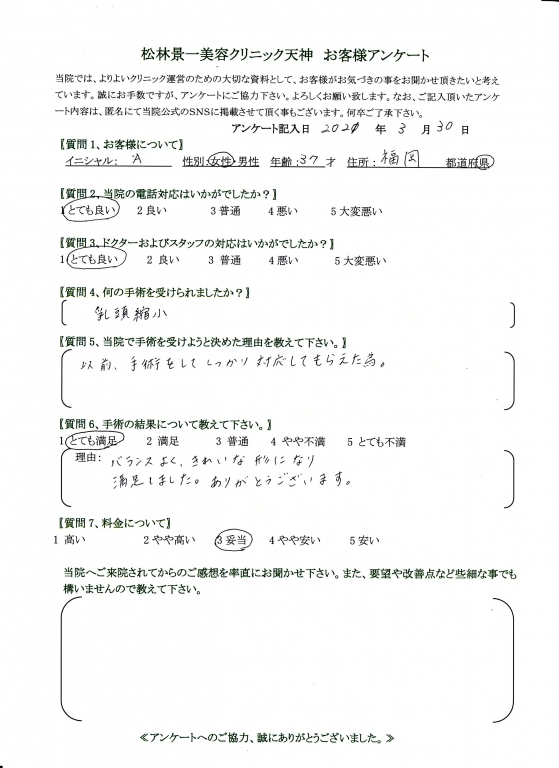 松林景一美容クリニック天神 お客様アンケート
当院では、よりよいクリニック運営のための大切な資料として、お客様がお気づきの事をお聞かせ頂きたいと考え
ています。誠にお手数ですが、アンケートにご協力下さい。よろしくお願い致します。なお、ご記入頂いたアンケ
ート内容は、匿名にて当院公式のSNSに掲載させて頂く事もございます。何卒ご了承下さい。
アンケート記入日 2021 年 3 月 30 日
【質問1、お客様について】
イニシャル: A 性別:女性・男性 年齢:37才 住所: 福岡 都道府県
【質問2、当院の電話対応はいかがでしたか?】
1 とても良い 2 良い 3 普通 4 悪い 5 大変悪い
【質問3、ドクターおよびスタッフの対応はいかがでしたか?】
1 とても良い 2 良い 3 普通 4 悪い 5 大変悪い
【質問4、何の手術を受けられましたか?】
乳頭縮小
【質問5、当院で手術を受けようと決めた理由を教えて下さい。】
以前、手術をしてしっかり対応してもらえた為。
【質問6、手術の結果について教えて下さい。】
1 とても満足 2 満足 3 普通 4 やや不満 5 とても不満
理由: バランスよく、きれいな形になり
満足しました。ありがとうございます。
【質問7、料金について】
1 高い 2 やや高い 3 妥当 4 やや安い 5 安い
当院へご来院されてからのご感想を率直にお聞かせ下さい。また、要望や改善点など些細な事でも
構いませんので教えて下さい。
≪アンケートへのご協力、誠にありがとうございました。≫